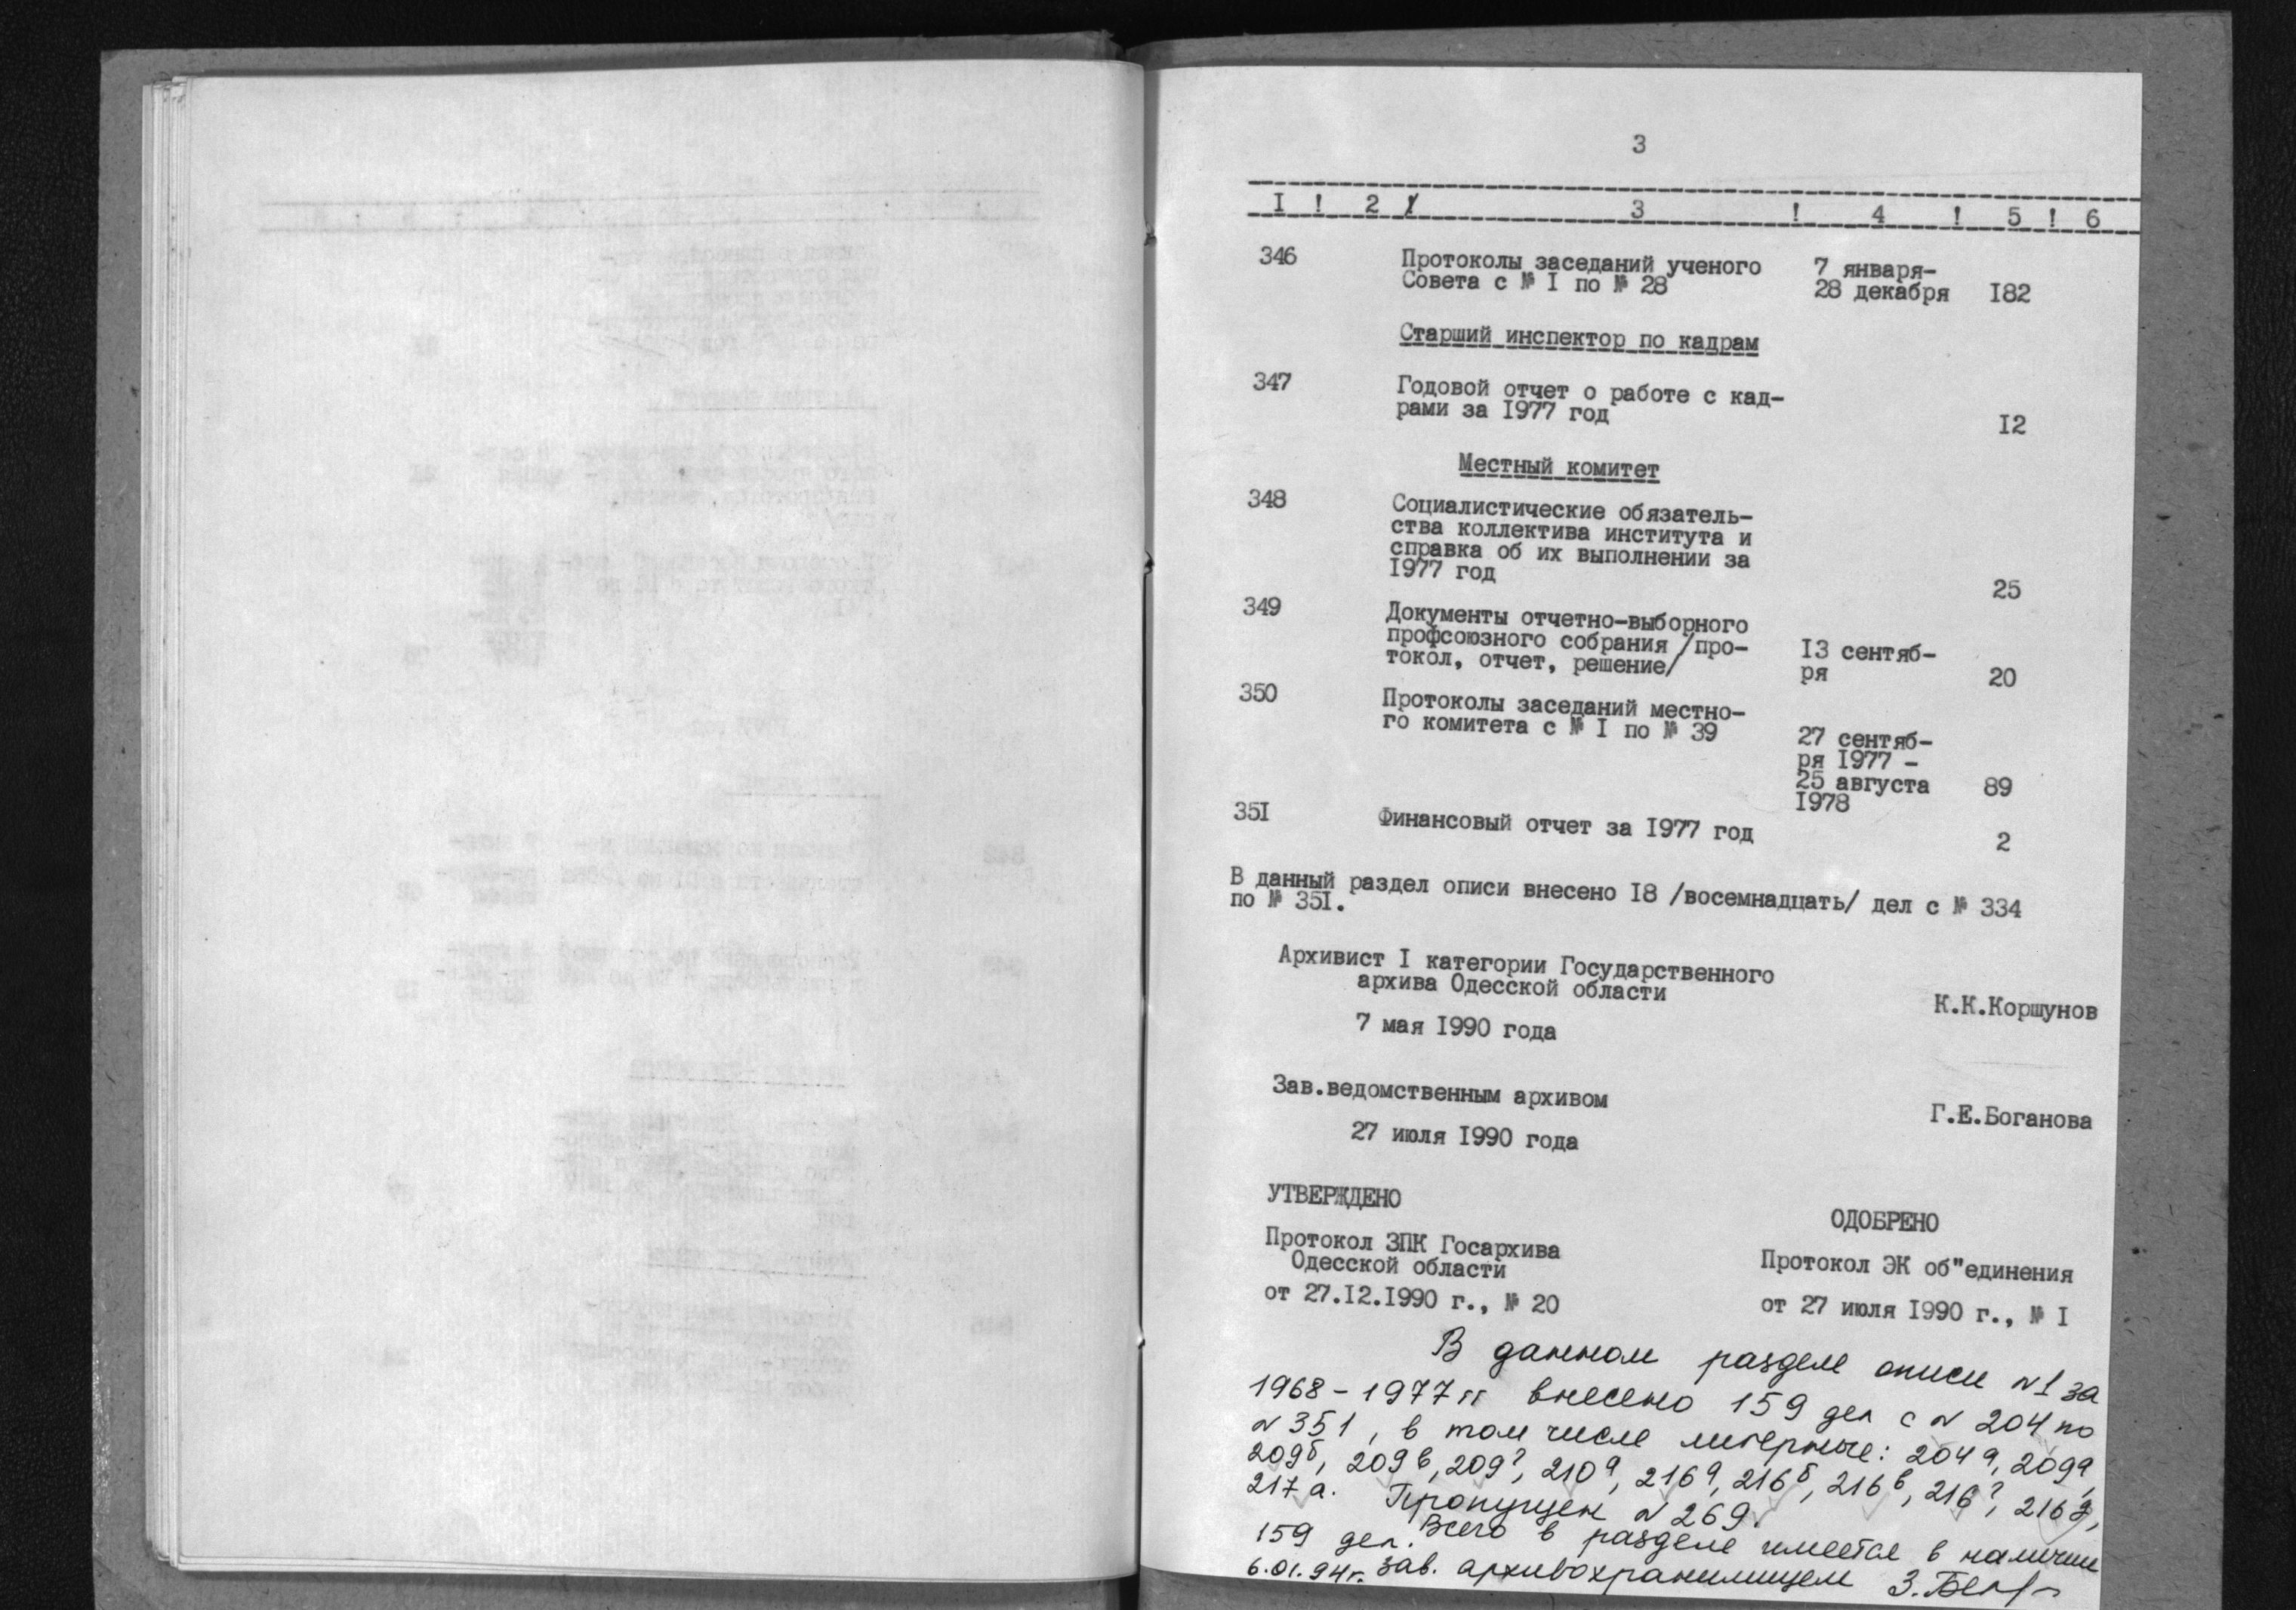 3
I ! 2 ! 3 ! 4 ! 5 ! 6
346 Протоколы заседаний ученого 7 января-
Совета с № I по № 28 28 декабря I82
Старший инспектор по кадрам
347 Годовой отчет о работе с кад-
рами за I977 год I2
Местный комитет
348 Социалистические обязатель-
ства коллектива института и
справка об их выполнении за
I977 год 25
349 Документы отчетно-выборного
профсоюзного собрания /про- I3 сентяб-
токол, отчет, решение/ ря 20
350 Протоколы заседаний местно-
го комитета с № I по № 39 27 сентяб-
ря I977 -
25 августа 89
I978
35I Финансовый отчет за I977 год 2
В данный раздел описи внесено I8 /восемнадцать/ дел с № 334
по № 35I.
Архивист I категории Государственного
архива Одесской области К.К.Коршунов
7 мая I990 года
Зав.ведомственным архивом Г.Е.Боганова
27 июля I990 года
УТВЕРЖДЕНО ОДОБРЕНО
Протокол ЗПК Госархива Протокол ЭК об"единения
Одесской области
от 27.I2.I990 г., № 20 от 27 июля I990 г., № I
В данном разделе описи №1 за
1968-1977 гг внесено 159 дел с № 204 по
№ 351, в том числе литерные: 204а, 209а,
209б, 209в, 209г, 210а, 216а, 216б, 216в, 216г, 216д,
217а. Пропущен № 269.
Всего в разделе имеется в наличии
159 дел.
6.01.94г. Зав. архивохранилищем З.